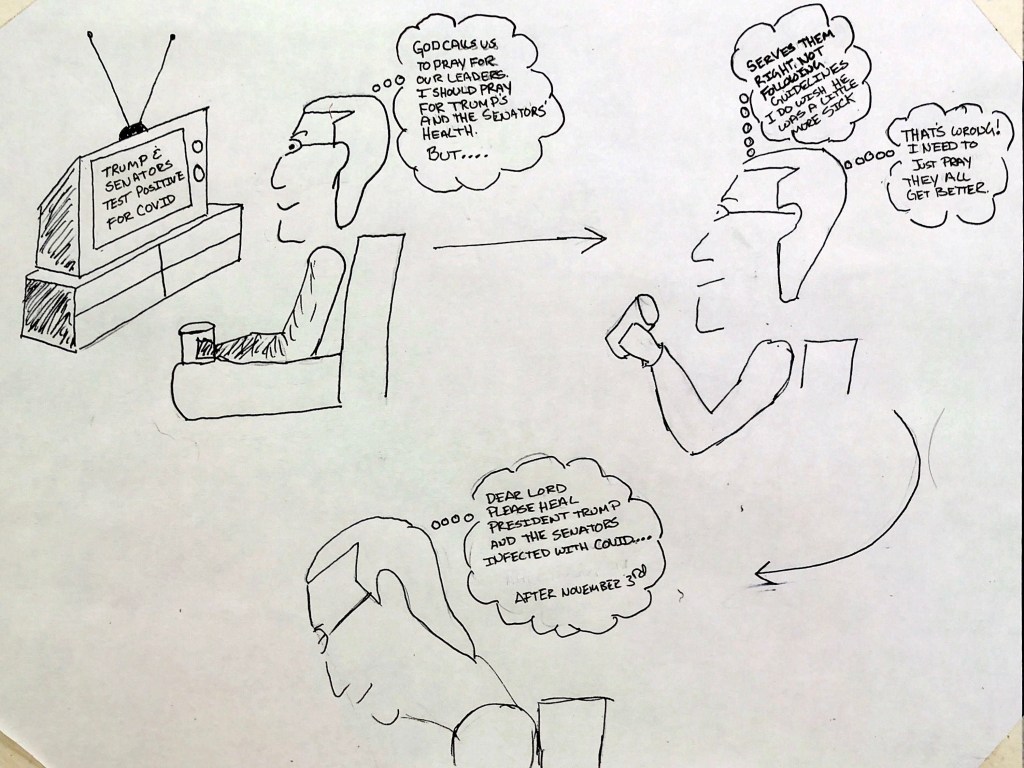 TRUMP &
SENATORS
TEST POSITIVE
FOR COVID
GOD CALLS US
TO PRAY FOR
OUR LEADERS.
I SHOULD PRAY
FOR TRUMP'S
AND THE SENATORS'
HEALTH.
BUT....
SERVES THEM
RIGHT. NOT
FOLLOWING
GUIDELINES
I DO WISH HE
WAS A LITTLE
MORE SICK
THAT'S WRONG!
I NEED TO
JUST PRAY
THEY ALL
GET BETTER.
DEAR LORD
PLEASE HEAL
PRESIDENT TRUMP
AND THE SENATORS
INFECTED WITH COVID....
AFTER NOVEMBER 3RD